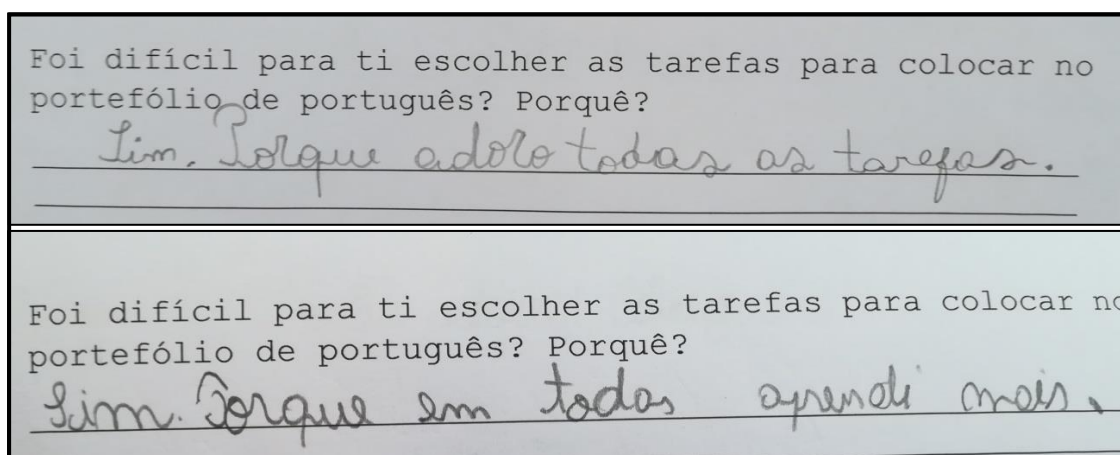 Foi difícil para ti escolher as tarefas para colocar no
portefólio de português? Porquê?
Sim. Porque adoro todas as tarefas.
Foi difícil para ti escolher as tarefas para colocar no
portefólio de português? Porquê?
Sim. Porque em todas aprendi mais.